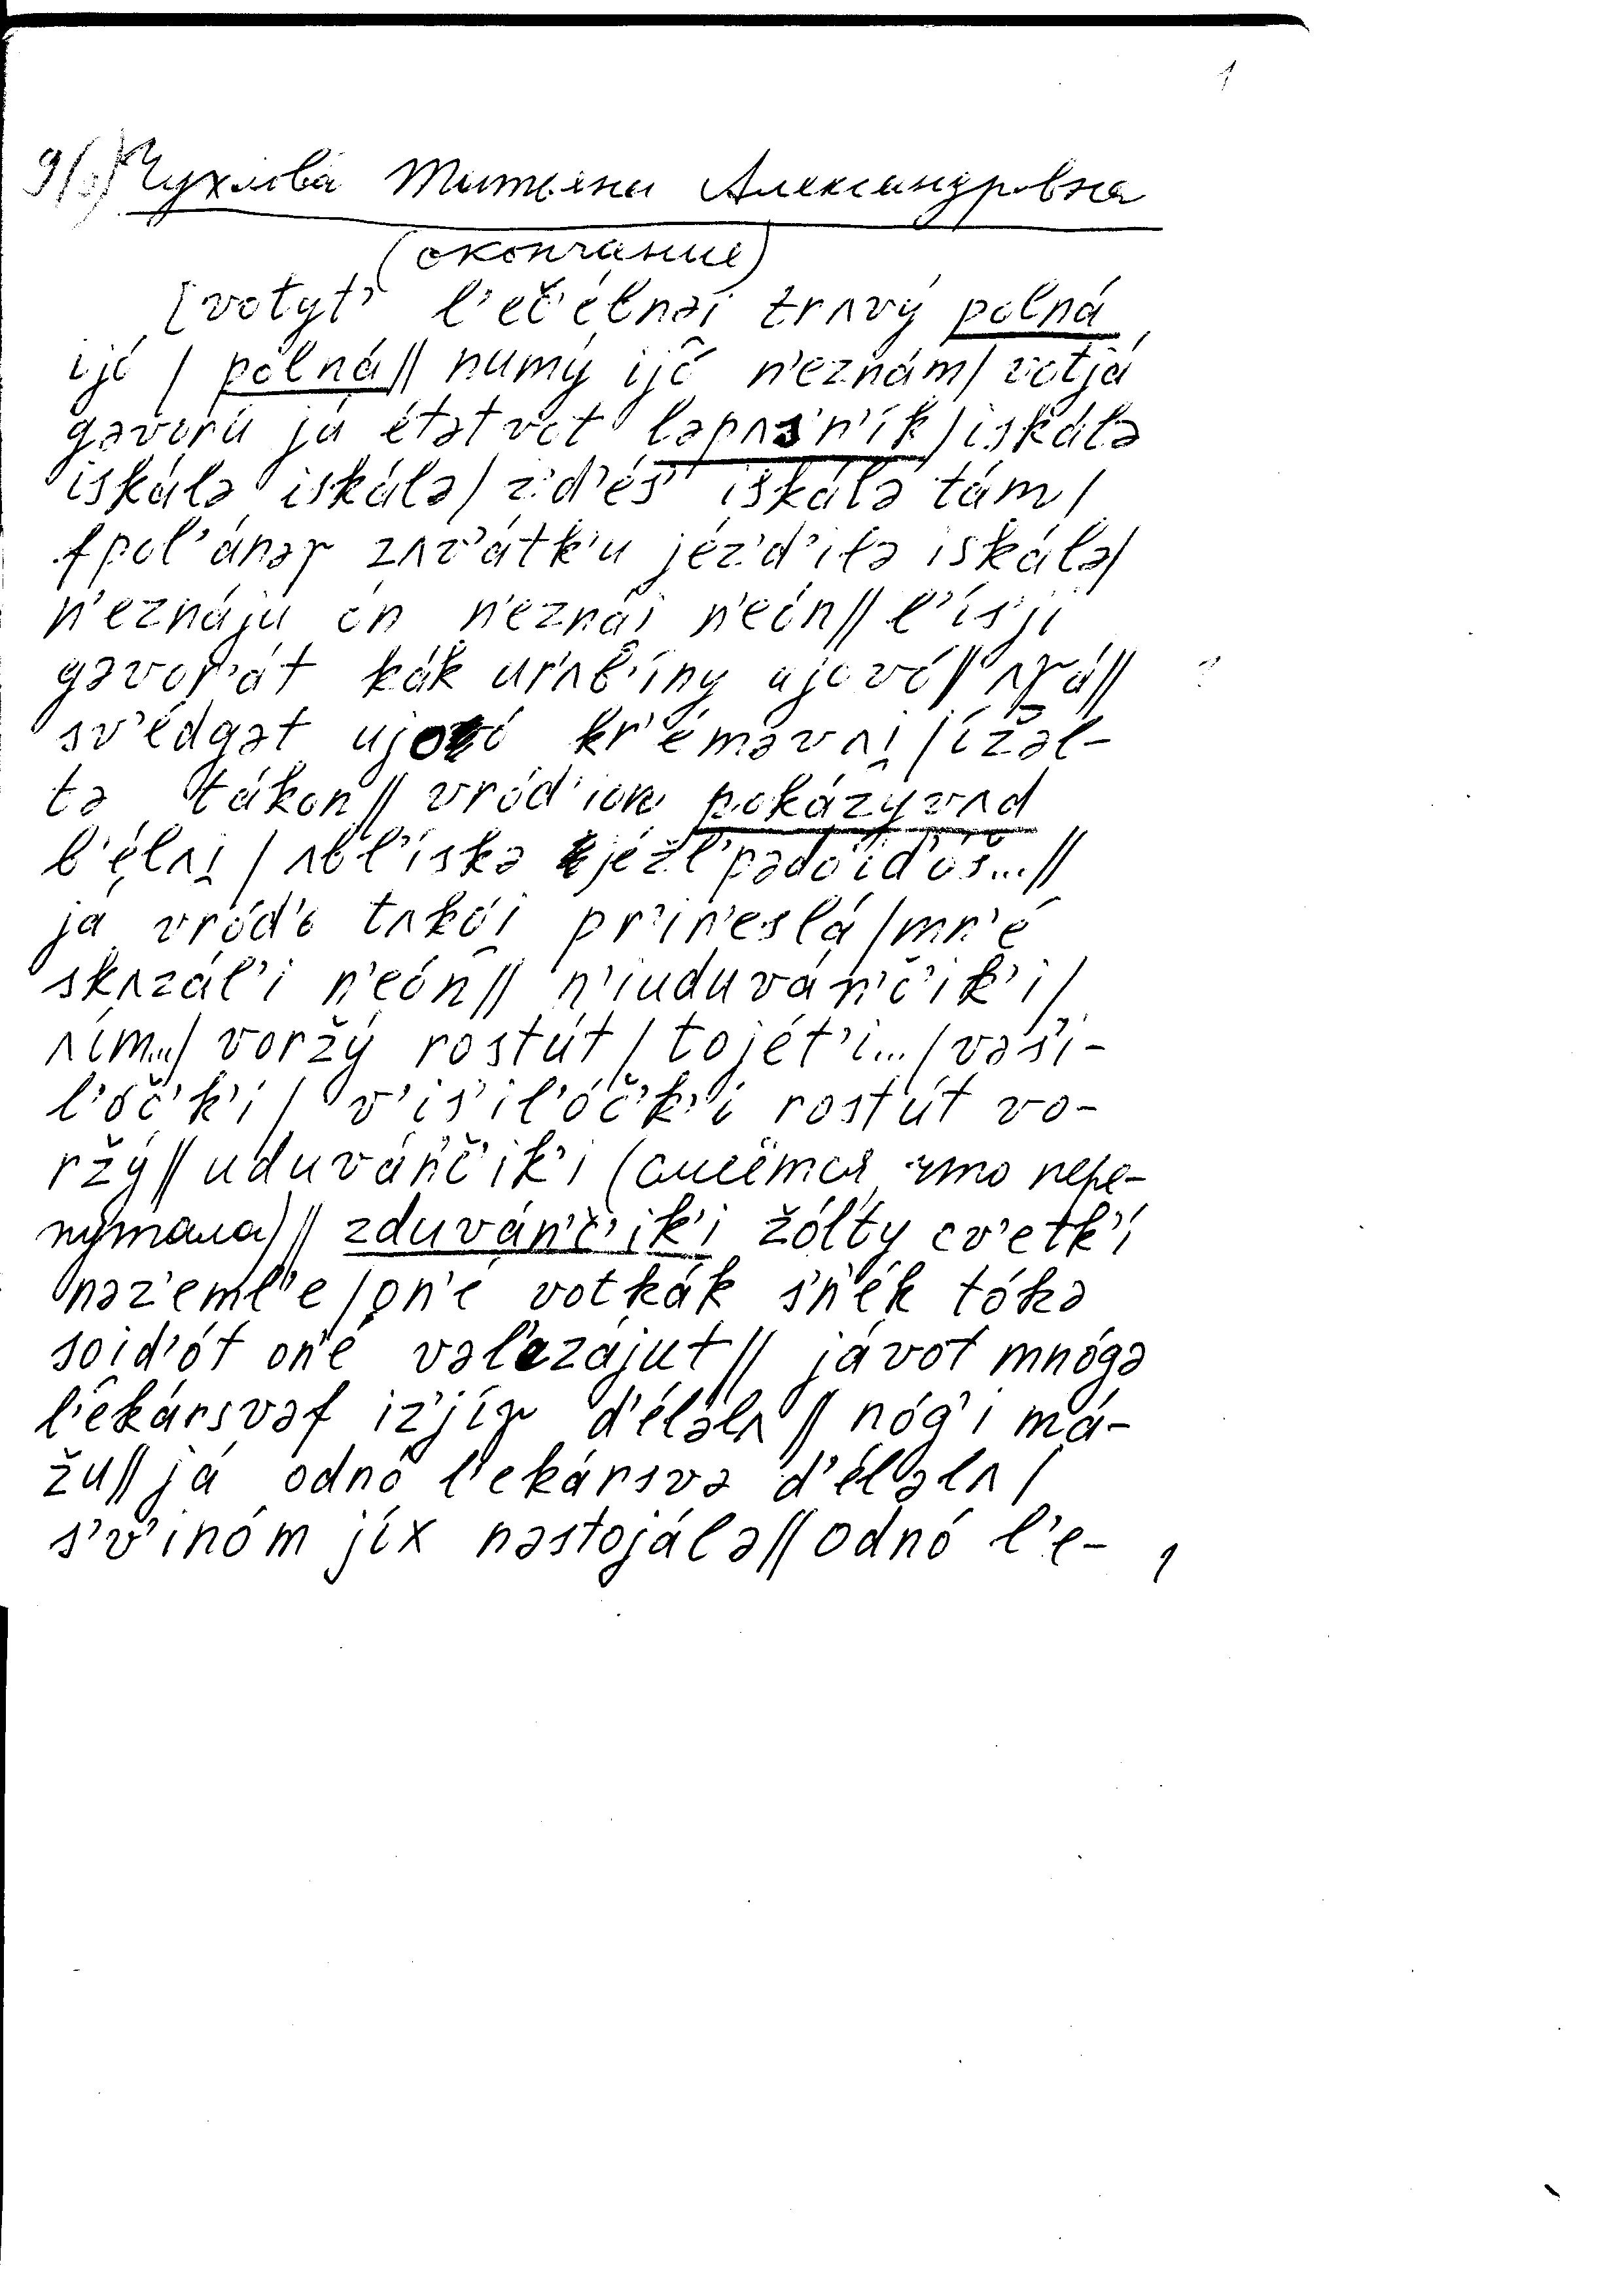 1
9/ Чухлова Татьяна Александровна
(окончание)
[votyt' l'eč'élnəi trʌvý polná
ijó / polná // numý ijó n'eznám / votjá
gəvorú já étət vot lapʌs'n'ík / iskálə
iskálə iskálə / z'd'és' iskálə tám /
fpol'ánəɣ zʌv'átk'u jéz'd'ilə iskálə /
n'eznáju ón n'eznái n'eón // l'ís'ji
gəvor'át kák ur'ʌb'íny ujovó // ʌɣá //
sv'édgət ujovó kr'éməvʌi̯ / ížəl-
tə tákon // vród'ion pokázyvʌd
b'élʌi̯ / ʌbl'ískə jéžl'pədoid'óš... //
já vród'o tʌkói pr'in'eslá / mn'é
skʌzál'i n'eón // n'iuduván'č'ik'i /
ʌím... / voržý rostút / tojét'i... / vəs'i-
l'óč'k'i / v'is'il'óč'k'i rostút vo-
ržý // uduván'č'ik'i (смеётся, что пере-
путала) // zduván'č'ik'i žólty cv'etk'í
nəz'eml'e / on'é votkák s'n'ék tókə
soid'ót on'é vəl'ezájut // jávot mnógə
l'ekársvəf iz'jíɣ d'éləlʌ // nóg'i má-
žu // já odnó l'ekársvə d'éləlʌ /
s'v'inóm jíx nəstojálə // odnó l'e-
1